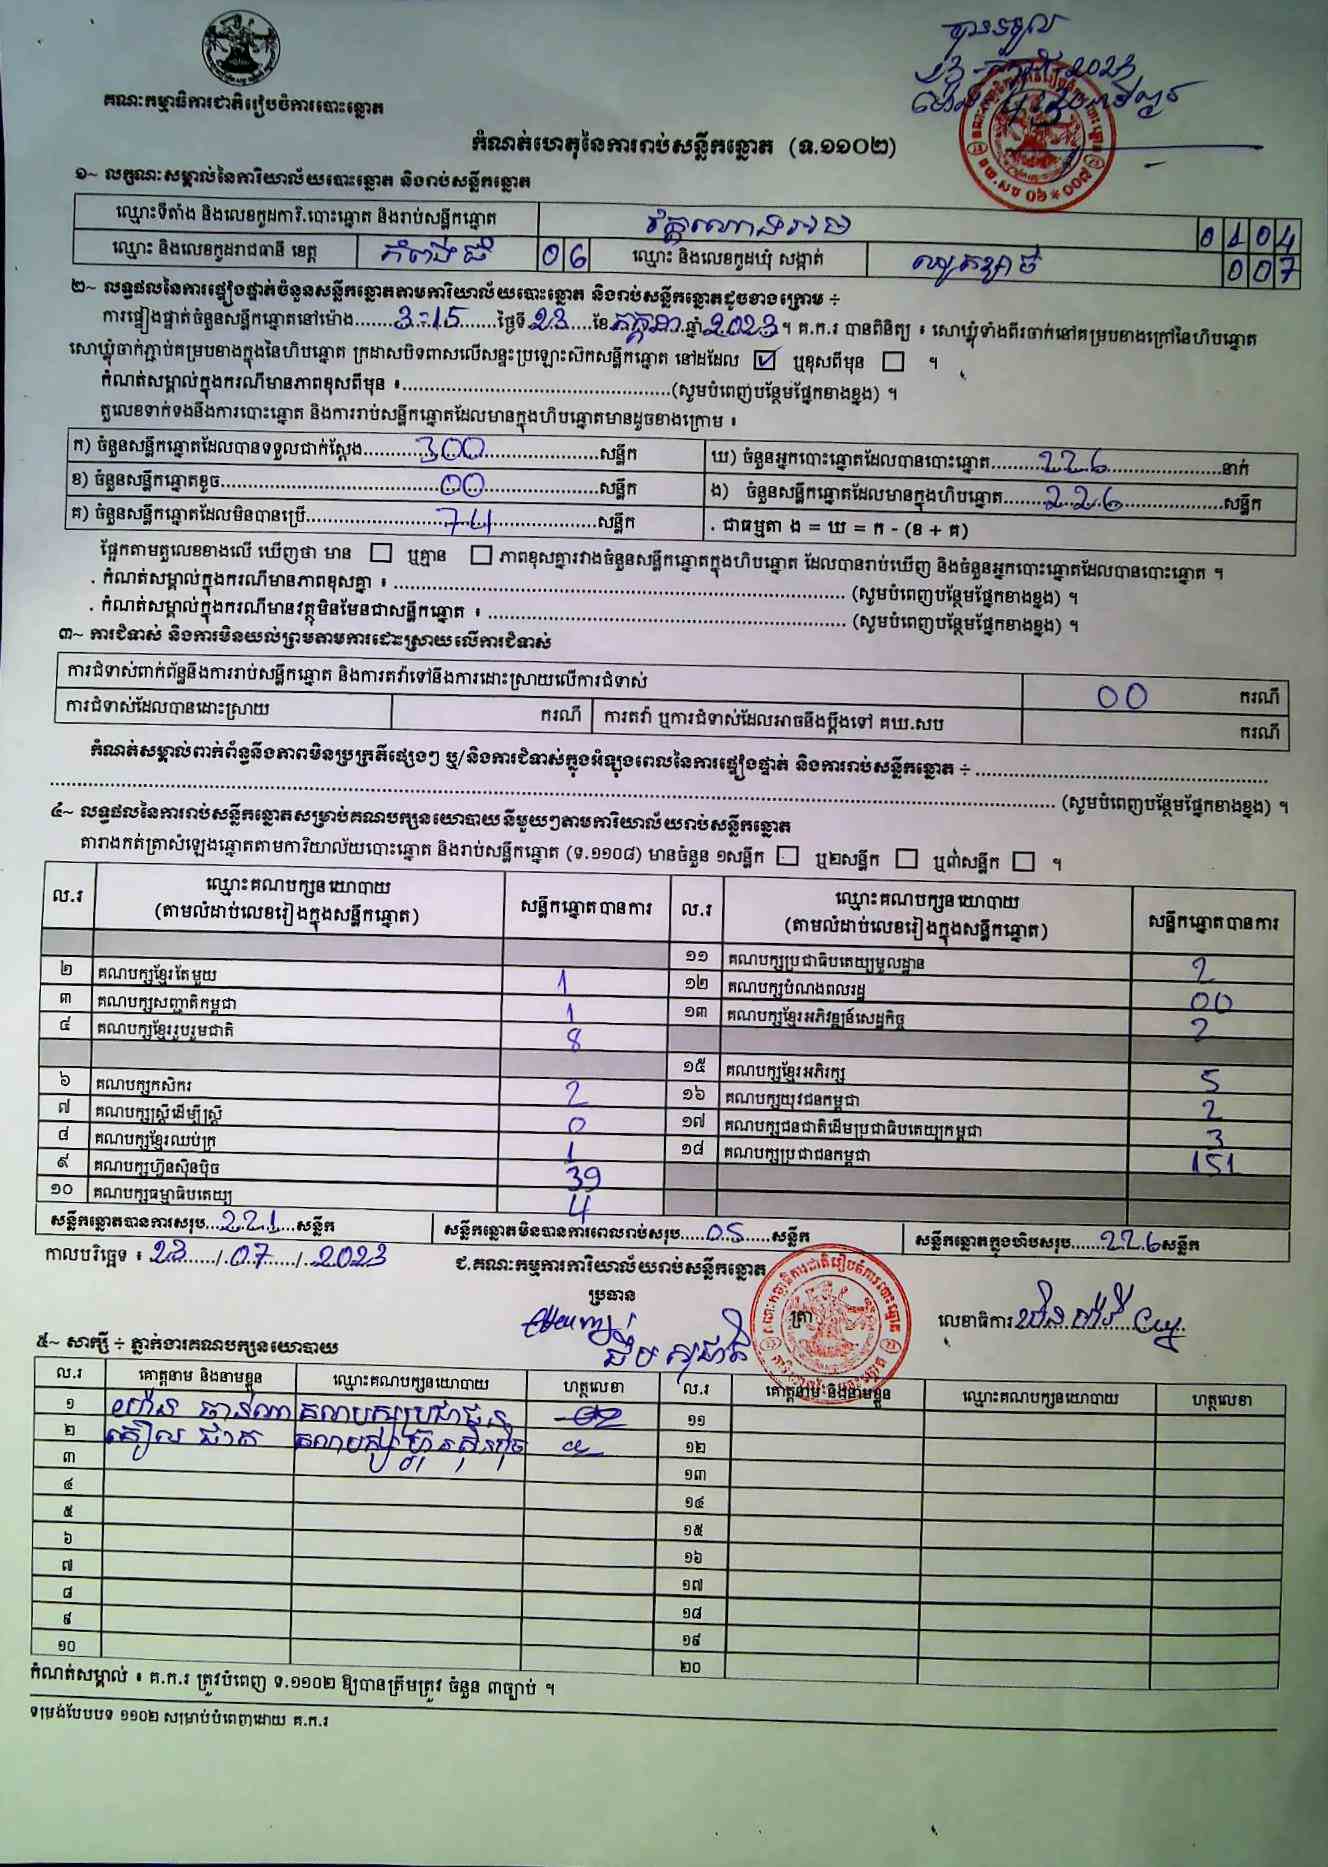 គណៈកម្មាធិការជាតិរៀបចំការបោះឆ្នោត
បានទទួល
កំណត់ហេតុនៃការរាប់សន្លឹកឆ្នោត (ទ.១១០២)
១~ លក្ខណៈសម្គាល់នៃការិយាល័យបោះឆ្នោត និងរាប់សន្លឹកឆ្នោត
ឈ្មោះទីតាំង និងលេខកូដការិ.បោះឆ្នោត និងរាប់សន្លឹកឆ្នោត 0104
ឈ្មោះ និងលេខកូដរាជធានី ខេត្ត កំពង់ធំ 06 ឈ្មោះ និងលេខកូដឃុំ សង្កាត់ 007
២~ លទ្ធផលនៃការផ្ទៀងផ្ទាត់ចំនួនសន្លឹកឆ្នោតតាមការិយាល័យបោះឆ្នោត និងរាប់សន្លឹកឆ្នោតដូចខាងក្រោម ÷
ការផ្ទៀងផ្ទាត់ចំនួនសន្លឹកឆ្នោតនៅម៉ោង.......3-15.......ថ្ងៃទី.23.ខែ.កក្កដា.ឆ្នាំ.2023។ គ.ក.រ បានពិនិត្យ ៖ សោឃ្លុំទាំងពីរចាក់នៅគម្របខាងក្រៅនៃហិបឆ្នោត
សោឃ្លុំចាក់ភ្ជាប់គម្របខាងក្នុងនៃហិបឆ្នោត ក្រដាសបិទពាសលើសន្ទះប្រឡោះស៊កសន្លឹកឆ្នោត នៅដដែល ☑ ឬខុសពីមុន ☐ ។
កំណត់សម្គាល់ក្នុងករណីមានភាពខុសពីមុន ៖.......(សូមបំពេញបន្ថែមផ្នែកខាងខ្នង) ។
តួលេខទាក់ទងនឹងការបោះឆ្នោត និងការរាប់សន្លឹកឆ្នោតដែលមានក្នុងហិបឆ្នោតមានដូចខាងក្រោម ៖
ក) ចំនួនសន្លឹកឆ្នោតដែលបានទទួលជាក់ស្តែង.......300.......សន្លឹក ឃ) ចំនួនអ្នកបោះឆ្នោតដែលបានបោះឆ្នោត.......226.......នាក់
ខ) ចំនួនសន្លឹកឆ្នោតខូច.......00.......សន្លឹក ង) ចំនួនសន្លឹកឆ្នោតដែលមានក្នុងហិបឆ្នោត.......226.......សន្លឹក
គ) ចំនួនសន្លឹកឆ្នោតដែលមិនបានប្រើ.......74.......សន្លឹក . ជាធម្មតា ង = ឃ = ក - (ខ + គ)
ផ្អែកតាមតួលេខខាងលើ ឃើញថា មាន ☐ ឬគ្មាន ☐ ភាពខុសគ្នារវាងចំនួនសន្លឹកឆ្នោតក្នុងហិបឆ្នោត ដែលបានរាប់ឃើញ និងចំនួនអ្នកបោះឆ្នោតដែលបានបោះឆ្នោត ។
. កំណត់សម្គាល់ក្នុងករណីមានភាពខុសគ្នា ៖ ....... (សូមបំពេញបន្ថែមផ្នែកខាងខ្នង) ។
. កំណត់សម្គាល់ក្នុងករណីមានវត្ថុមិនមែនជាសន្លឹកឆ្នោត ៖ ....... (សូមបំពេញបន្ថែមផ្នែកខាងខ្នង) ។
៣~ ការជំទាស់ និងការមិនយល់ព្រមតាមការដោះស្រាយលើការជំទាស់
ការជំទាស់ពាក់ព័ន្ធនឹងការរាប់សន្លឹកឆ្នោត និងការតវ៉ាទៅនឹងការដោះស្រាយលើការជំទាស់ 00 ករណី
ការជំទាស់ដែលបានដោះស្រាយ ករណី ការតវ៉ា ឬការជំទាស់ដែលអាចនឹងប្តឹងទៅ គឃ.សប ករណី
កំណត់សម្គាល់ពាក់ព័ន្ធនឹងភាពមិនប្រក្រតីផ្សេងៗ ឬ/និងការជំទាស់ក្នុងអំឡុងពេលនៃការផ្ទៀងផ្ទាត់ និងការរាប់សន្លឹកឆ្នោត ÷ .......
....... (សូមបំពេញបន្ថែមផ្នែកខាងខ្នង) ។
៤~ លទ្ធផលនៃការរាប់សន្លឹកឆ្នោតសម្រាប់គណបក្សនយោបាយនីមួយៗតាមការិយាល័យរាប់សន្លឹកឆ្នោត
តារាងកត់ត្រាសំឡេងឆ្នោតតាមការិយាល័យបោះឆ្នោត និងរាប់សន្លឹកឆ្នោត (ទ.១១០៨) មានចំនួន ១សន្លឹក ☐ ឬ២សន្លឹក ☐ ឬ៣សន្លឹក ☐ ។
ល.រ ឈ្មោះគណបក្សនយោបាយ (តាមលំដាប់លេខរៀងក្នុងសន្លឹកឆ្នោត) សន្លឹកឆ្នោតបានការ ល.រ ឈ្មោះគណបក្សនយោបាយ (តាមលំដាប់លេខរៀងក្នុងសន្លឹកឆ្នោត) សន្លឹកឆ្នោតបានការ
១១ គណបក្សប្រជាធិបតេយ្យមូលដ្ឋាន 2
២ គណបក្សខ្មែរតែមួយ 1 ១២ គណបក្សបំណងពលរដ្ឋ 00
៣ គណបក្សសញ្ជាតិកម្ពុជា 1 ១៣ គណបក្សខ្មែរអភិវឌ្ឍន៍សេដ្ឋកិច្ច 2
៤ គណបក្សខ្មែររួបរួមជាតិ 8
១៥ គណបក្សខ្មែរអភិរក្ស 5
៦ គណបក្សកសិករ 2 ១៦ គណបក្សយុវជនកម្ពុជា 2
៧ គណបក្សស្ត្រីដើម្បីស្ត្រី 0 ១៧ គណបក្សជនជាតិដើមប្រជាធិបតេយ្យកម្ពុជា 3
៨ គណបក្សខ្មែរឈប់ក្រ 1 ១៨ គណបក្សប្រជាជនកម្ពុជា 151
៩ គណបក្សហ៊្វុនស៊ិនប៉ិច 39
១០ គណបក្សធម្មាធិបតេយ្យ 4
សន្លឹកឆ្នោតបានការសរុប...221...សន្លឹក សន្លឹកឆ្នោតមិនបានការពេលរាប់សរុប.....05.....សន្លឹក សន្លឹកឆ្នោតក្នុងហិបសរុប.......226សន្លឹក
កាលបរិច្ឆេទ ៖ 23....../.07....../..2023 ជ.គណៈកម្មការការិយាល័យរាប់សន្លឹកឆ្នោត
ប្រធាន
ត្រា
លេខាធិការ
៥~ សាក្សី ÷ ភ្នាក់ងារគណបក្សនយោបាយ
ល.រ គោត្តនាម និងនាមខ្លួន ឈ្មោះគណបក្សនយោបាយ ហត្ថលេខា ល.រ គោត្តនាម និងនាមខ្លួន ឈ្មោះគណបក្សនយោបាយ ហត្ថលេខា
១ គណបក្សប្រជាជន ១១
២ គណបក្សហ៊្វុនស៊ិនប៉ិច ១២
៣ ១៣
៤ ១៤
៥ ១៥
៦ ១៦
៧ ១៧
៨ ១៨
៩ ១៩
១០ ២០
កំណត់សម្គាល់ ៖ គ.ក.រ ត្រូវបំពេញ ទ.១១០២ ឱ្យបានត្រឹមត្រូវ ចំនួន ៣ច្បាប់ ។
ទម្រង់បែបបទ ១១០២ សម្រាប់បំពេញដោយ គ.ក.រ